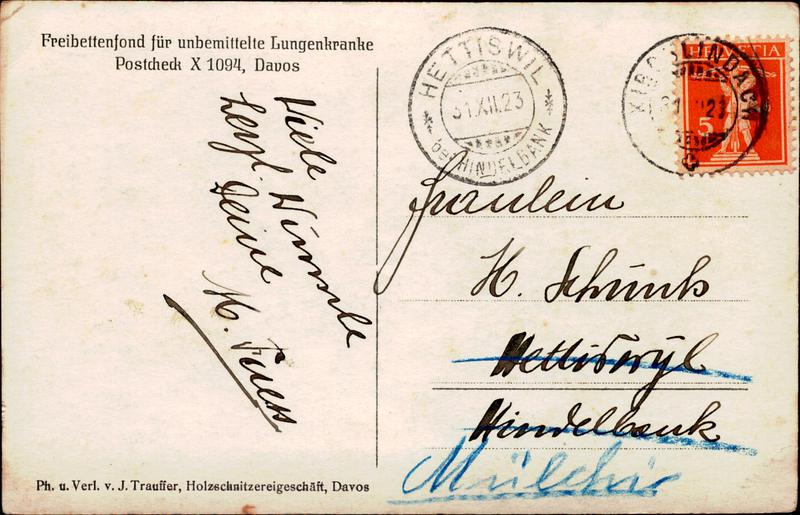 Freibettenfond für unbemittelte Lungenkranke
Postcheck X 1094, Davos
Viele
herzl. Wünsche
Deine
HETTISWIL
31.XII.23
bei HINDELBANK
HELVETIA
5
Fräulein
H. Schunk
Hettiswyl
Hindelbank
Mülchi
Ph. u. Verl. v. J. Trauffer, Holzschnitzereigeschäft, Davos